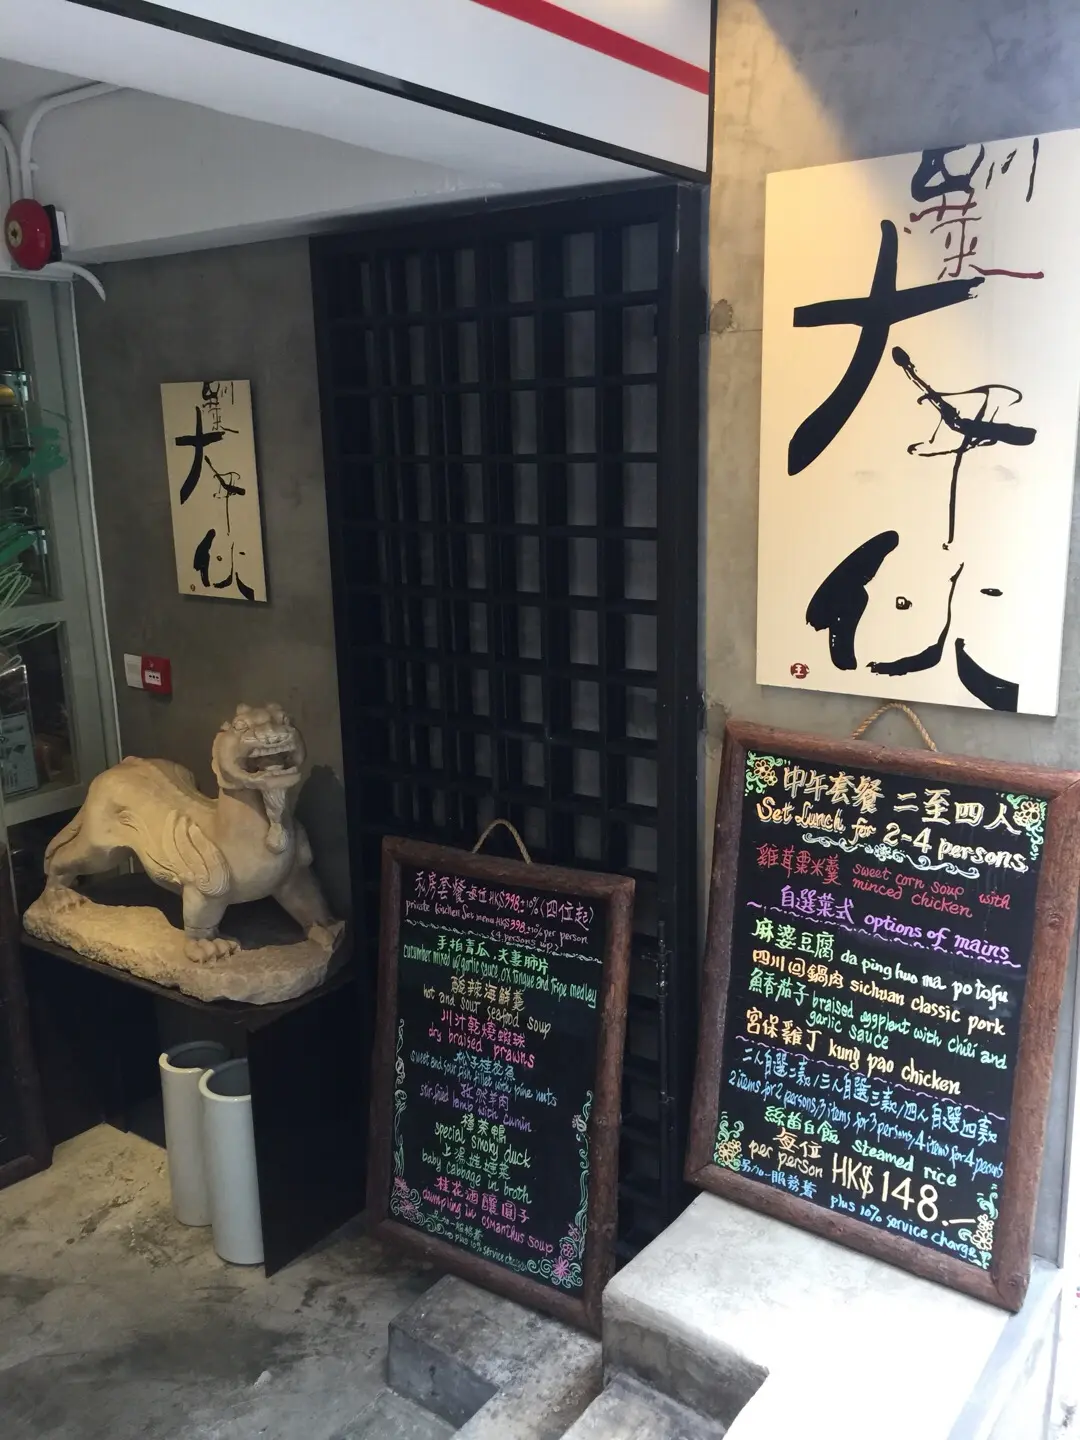 川
菜
大
平
伙
川
菜
大
平
伙
私房套餐每位HK$398+10%(四位起)
private kitchen set menu HK$398+10% per person
(4 persons up)
手拍青瓜,夫妻肺片
cucumber mixed w/garlic sauce ox tongue and tripe medley
酸辣海鮮羹
hot and sour seafood soup
川汁乾燒蝦球
dry braised prawns
sweet and sour fish fillet with pine nuts
孜然羊肉
stir fried lamb with cumin
樟茶鴨
special smoky duck
上湯娃娃菜
baby cabbage in broth
桂花酒釀圓子
dumpling in osmanthus soup
加一服務費
plus 10% service charge
中午套餐 二至四人
Set Lunch for 2-4 persons
雞茸粟米羹 sweet corn soup with
minced chicken
自選菜式 options of mains
麻婆豆腐 da ping huo ma po tofu
四川回鍋肉 sichuan classic pork
魚香茄子 braised eggplant with chili and
garlic sauce
宮保雞丁 kung pao chicken
二人自選二款/三人自選三款/四人自選四款
2 items for 2 persons/3 items for 3 persons/4 items for 4 persons
絲苗白飯 steamed rice
每位
per person HK$148.-
另加一服務費 plus 10% service charge